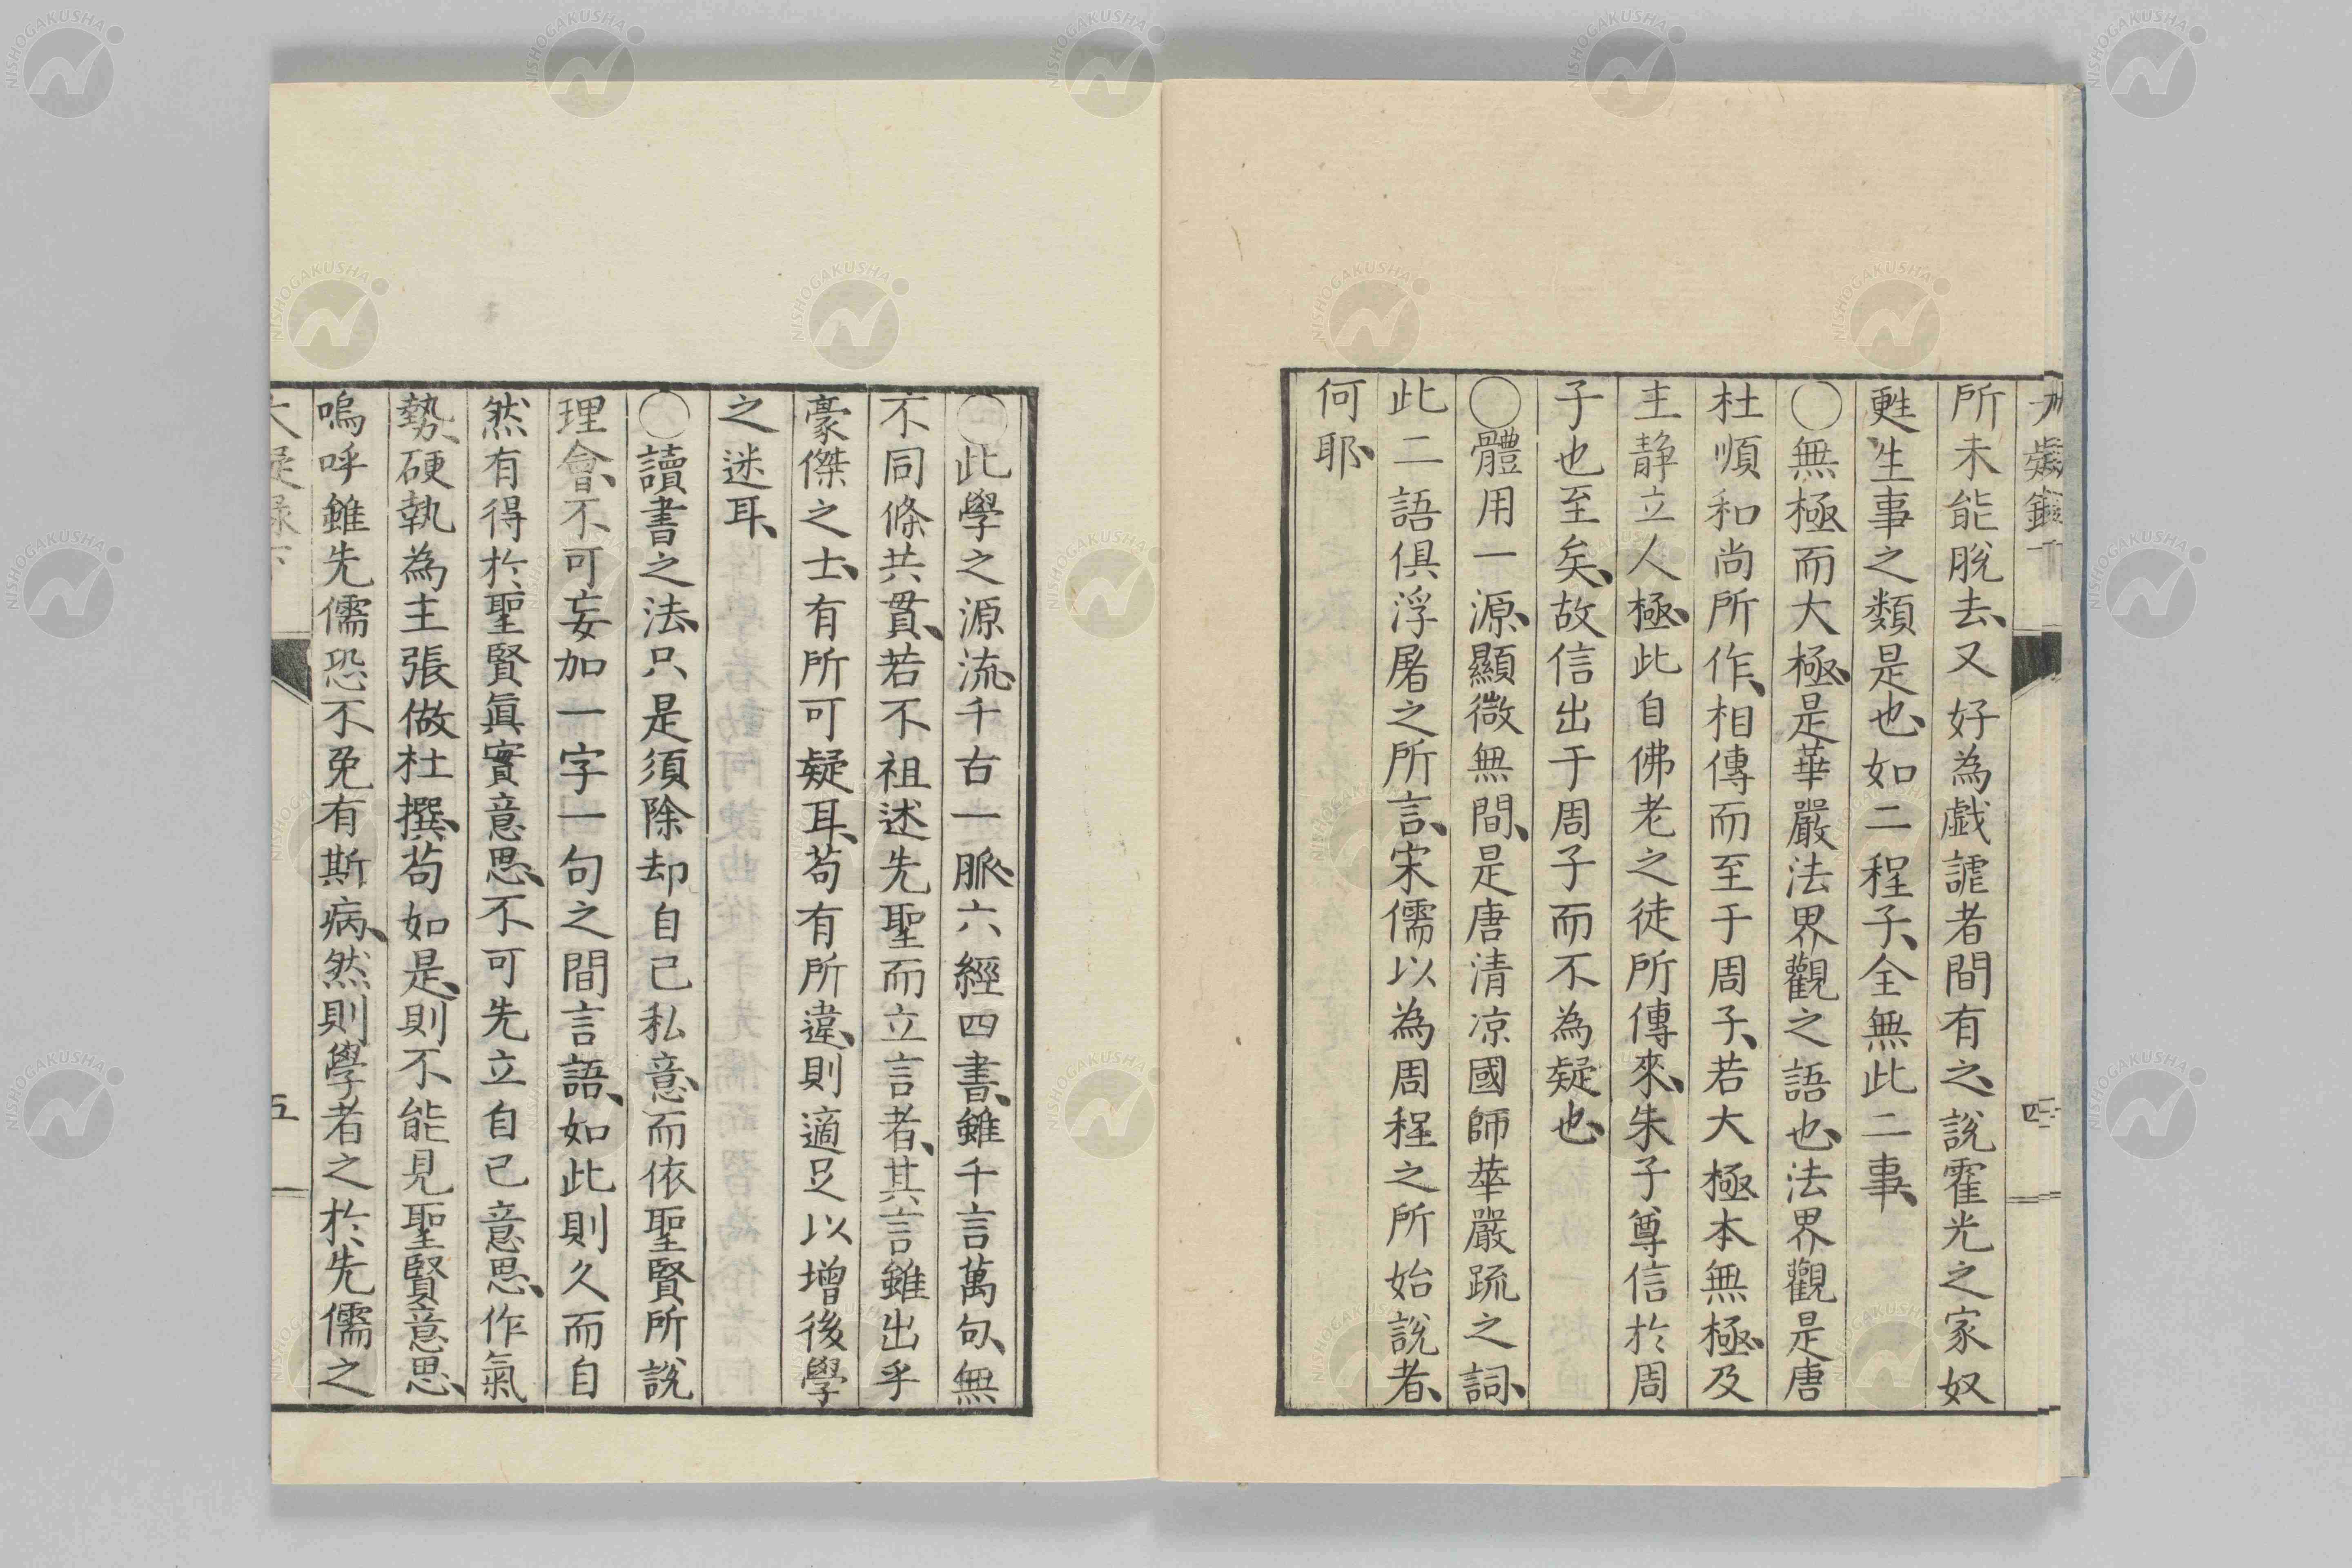 所未能脫去、又好為戯謔者間有之、說霍光之家奴
甦生事之類是也、如二程子、全無此二事、
○無極而大極、是華嚴法界觀之語也、法界觀是唐
杜順和尚所作、相傳而至于周子、若大極本無極、及
主静立人極、此自佛老之徒所傳來、朱子尊信於周
子也至矣、故信出于周子而不為疑也、
○體用一源、顯微無間、是唐清凉國師華嚴疏之詞、
此二語俱浮屠之所言、宋儒以為周程之所始說者、
何耶、
四
○此學之源流、千古一脈、六經四書、雖千言萬句、無
不同條共貫、若不祖述先聖而立言者、其言雖出乎
豪傑之士、有所可疑耳、苟有所違、則適足以增後學
之迷耳、
○讀書之法、只是須除却自己私意、而依聖賢所說
理會、不可妄加一字一句之間言語、如此則久而自
然有得於聖賢眞實意思、不可先立自己意思、作氣
勢、硬執為主張做杜撰、苟如是、則不能見聖賢意思、
嗚呼雖先儒恐不免有斯病、然則學者之於先儒之
大疑録下
五
NISHOGAKUSHA